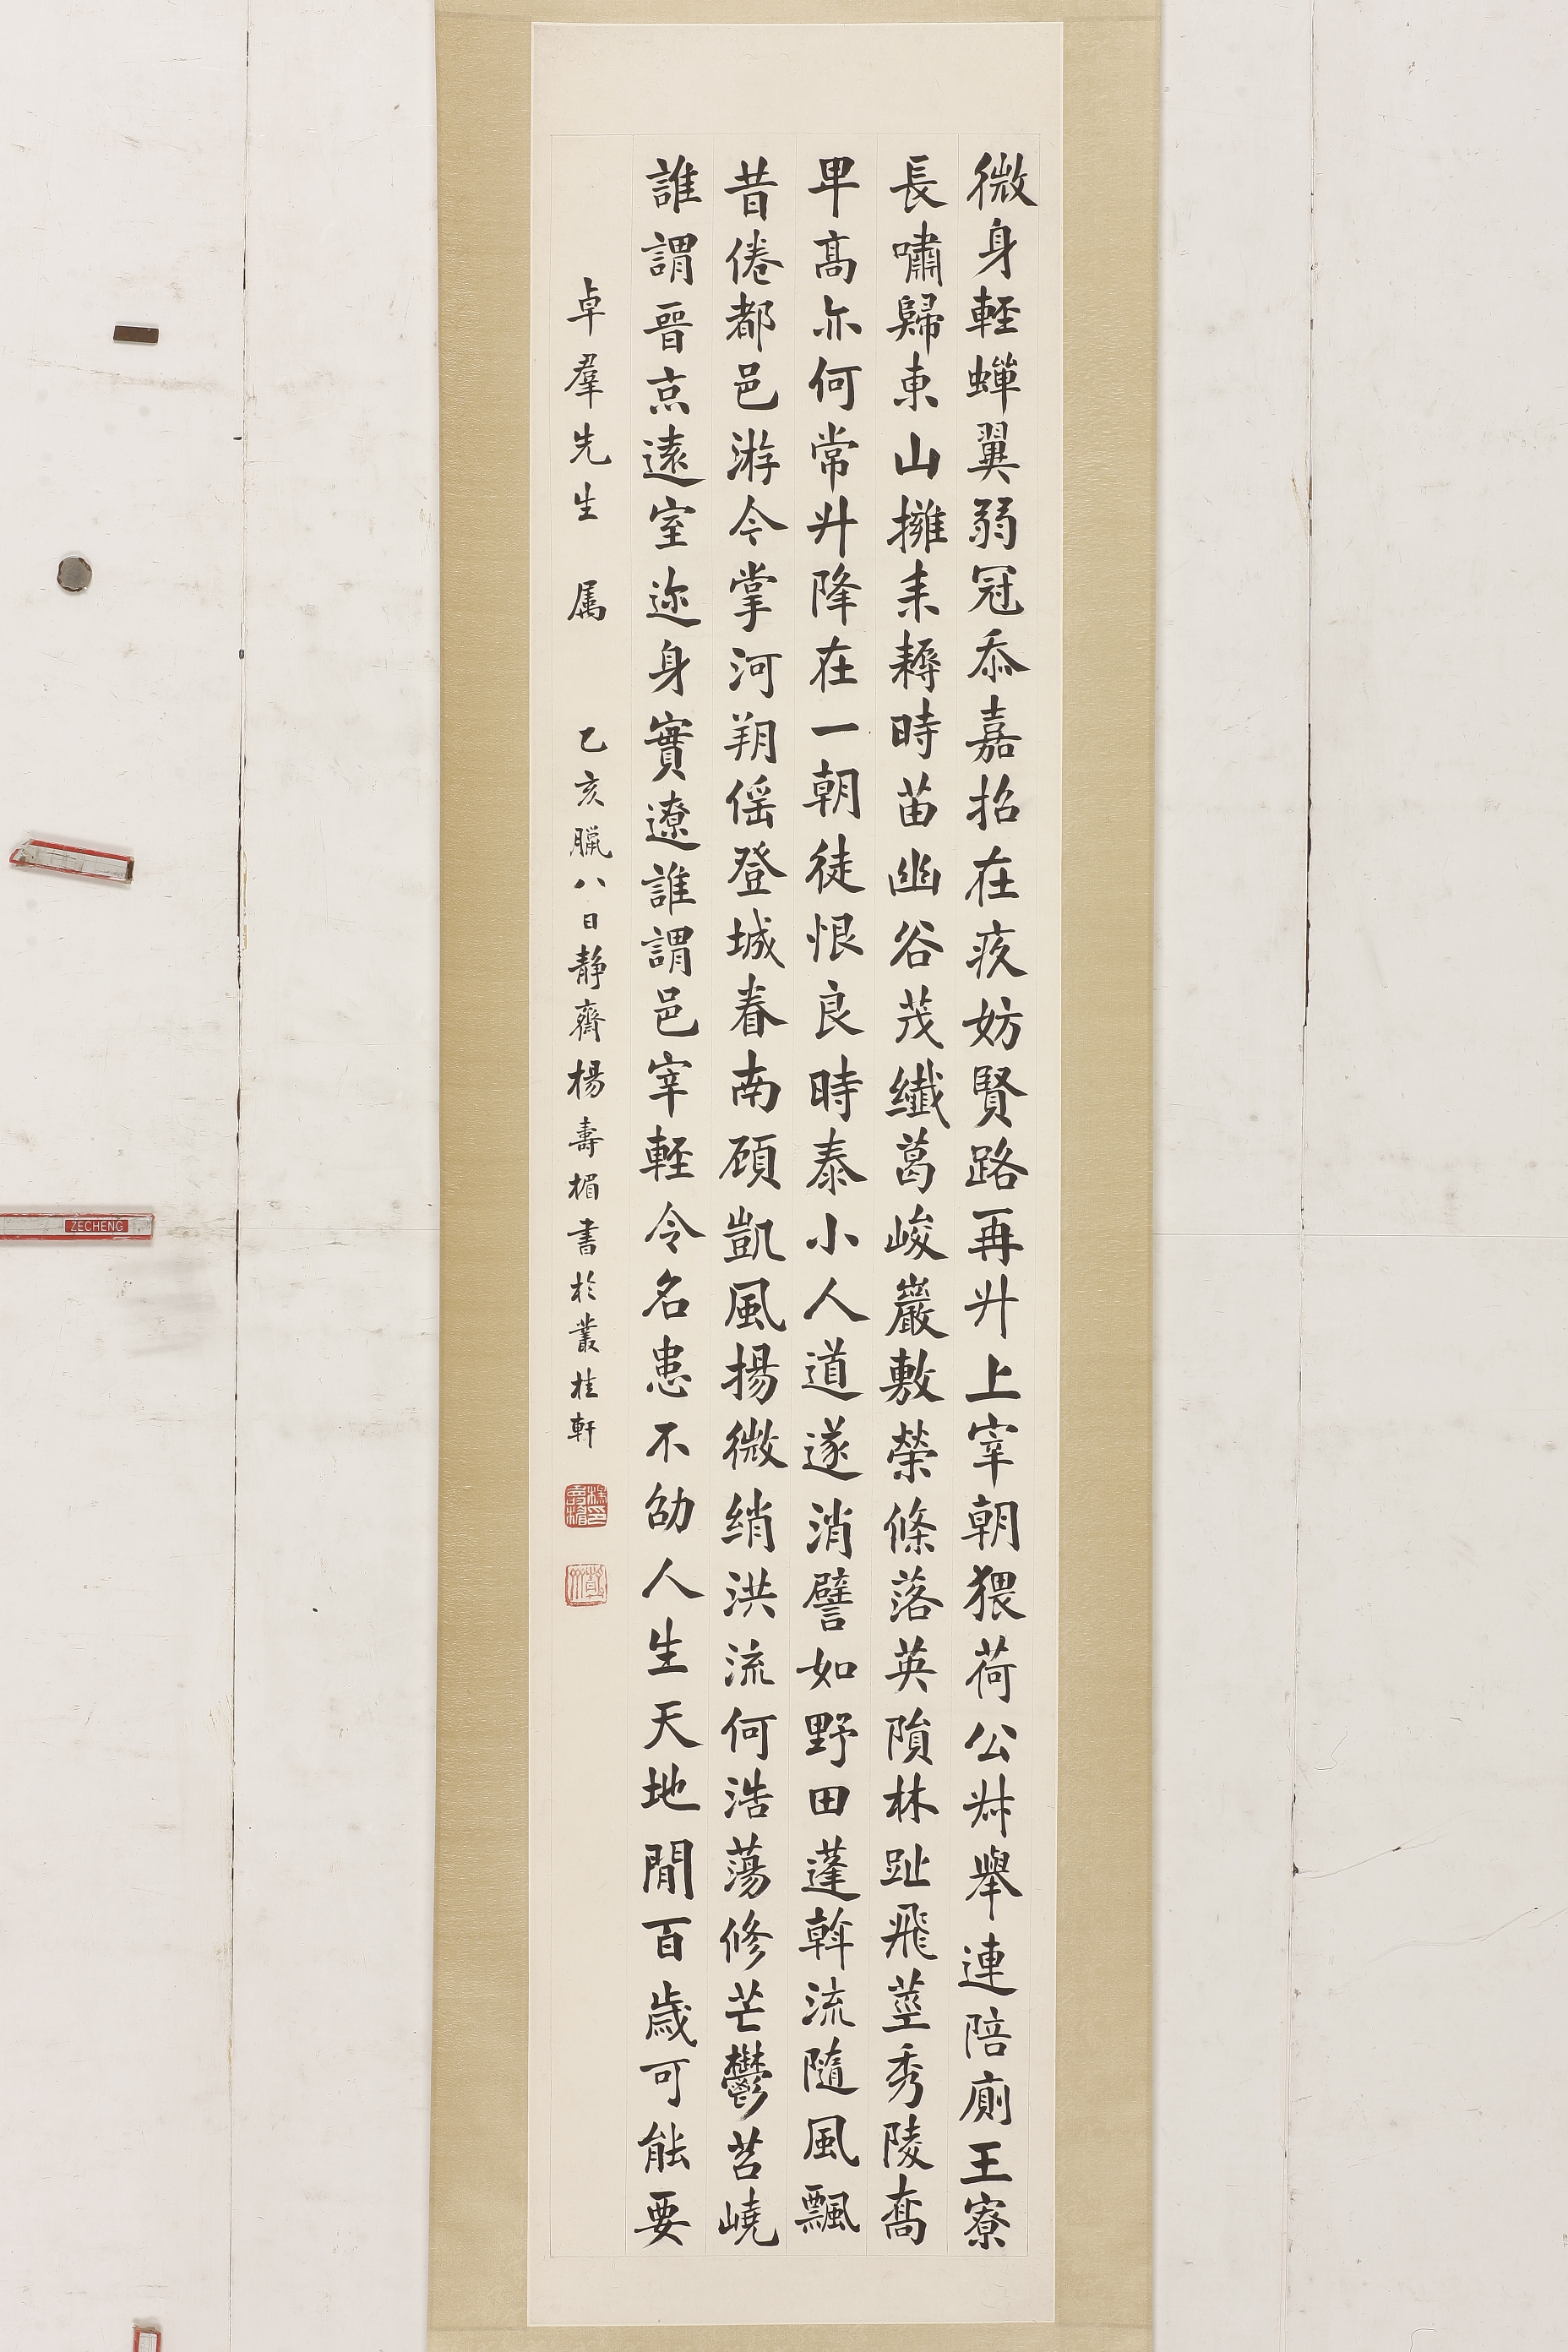 微身輕蟬翼弱冠忝嘉招在疚妨賢路再升上宰朝猥荷公叔舉連陪廁王寮
長嘯歸東山擁耒耨時苗幽谷茂纖葛峻巖敷榮條落英隕林趾飛莖秀陵喬
卑高亦何常升降在一朝徒恨良時泰小人道遂消譬如野田蓬斡流隨風飄
昔倦都邑游今掌河朔徭登城眷南顧凱風揚微綃洪流何浩蕩修芒鬱苕嶢
誰謂晉京遠室迩身實遼誰謂邑宰輕令名患不劭人生天地閒百歲可能要
卓羣先生 属 乙亥臘八日靜齋楊壽楣書於叢桂軒
ZECHENG